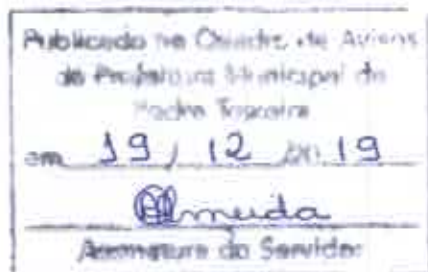 Publicado no Quadro de Avisos
da Prefeitura Municipal de
Pedra Teixeira
em 19 / 12 /20 19
Almeida
Assinatura do Servidor